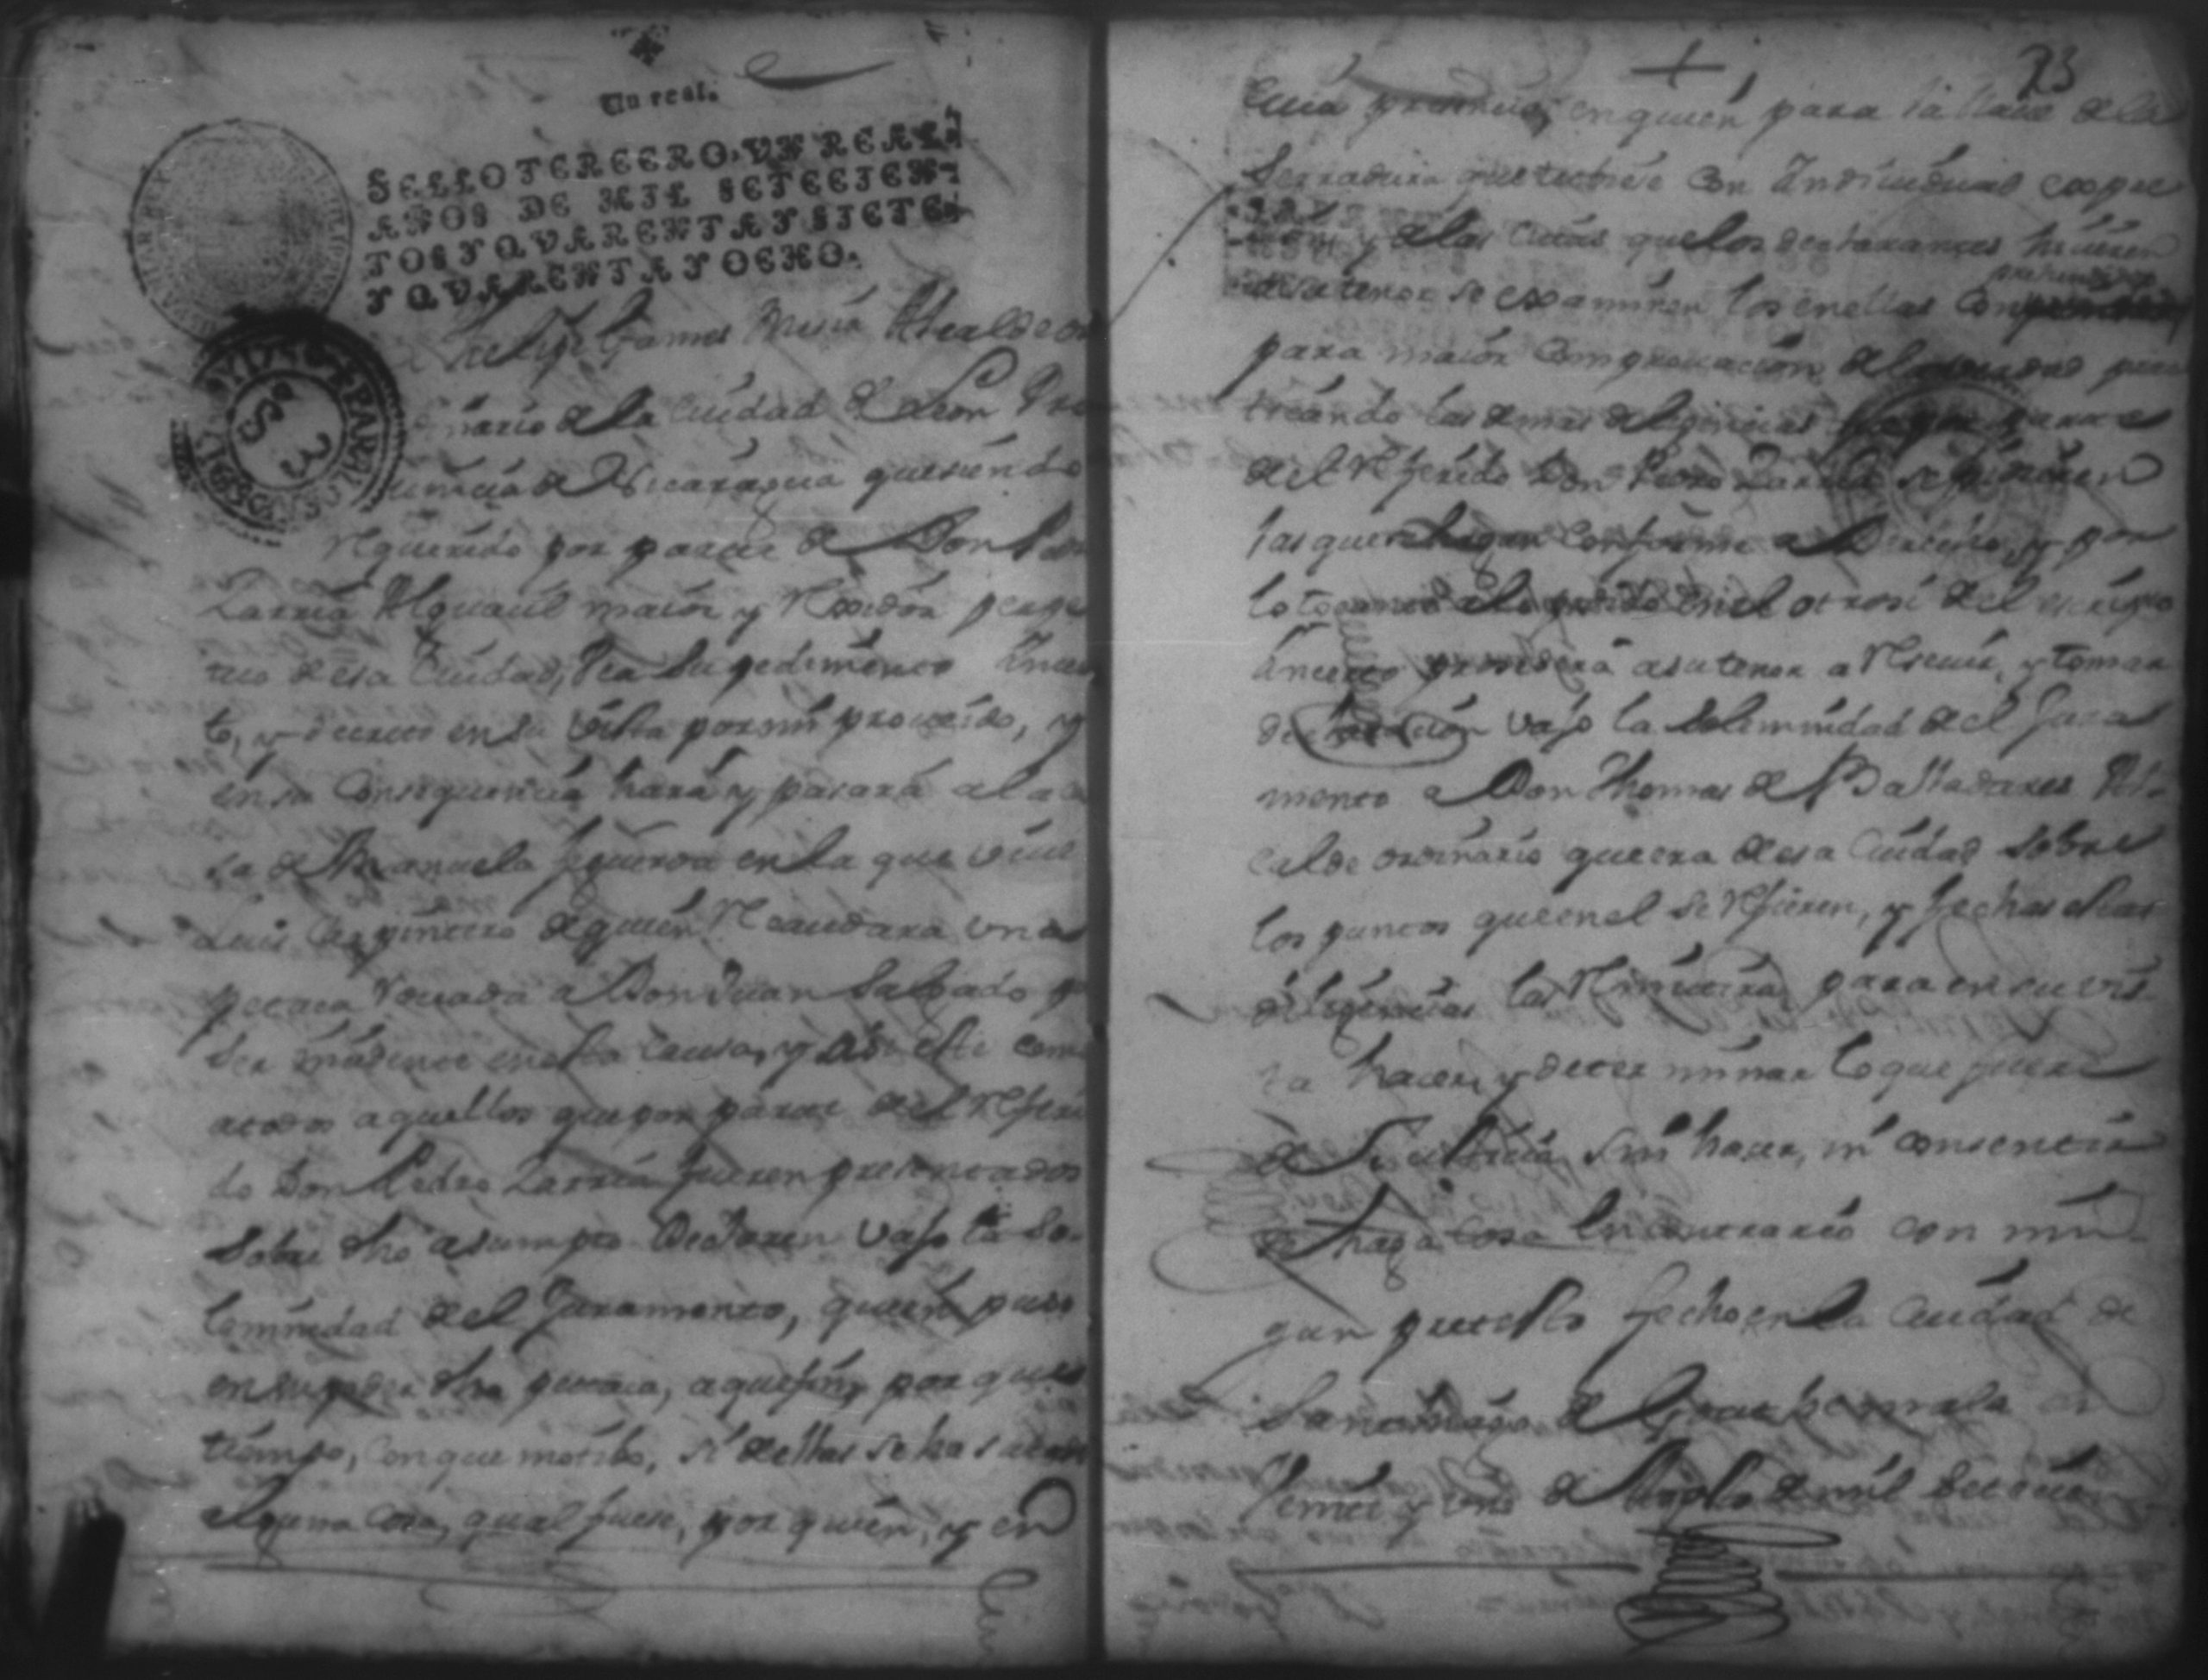 Un real.
SELLO TERCERO, UN REAL,
AÑOS DE MIL SETECIEN-
TOS Y QUARENTA Y SIETE,
Y QUARENTA Y OCHO.
Alcalde or
dinario de la Ciudad de Leon Pro
uincia de Nicaragua que siendo
Requerido por parte de Don Pedro
Larria Alguacil maior y Rexidor perpe
tuo de esa Ciudad, Vea Su pedimento Incer
to, y decreto en su Vista por mi proueido, y
en su Consequencia hará y pasará a la ca
sa de Manuela Figueroa en la que viue
Luis Espinosa de quien Recaudara una
petaca Robada a Don Juan Salgado
Ser en esta Causa, y
a todos aquellos que por parte del Referi
do Don Pedro Larria fueren presentados
Sobre dho asumpto Declaren Vajo la So-
lemnidad del Juramento, quien puso
en su poder dha petaca, a que fin, por que
tiempo, con que motibo, si dellas se ha sacado
alguna Cosa, qual fuese, por quien, y en
23
cuia presencia, en quien para la llaue de la
Serradura que tubiese Con Indiuidual expre
sion y a las Citas que los declarantes hicieren
a su tenor se examinen los en ellas
para maior Comprouacion de la verdad prac
ticando las demas diligencias que por parte
del Referido Don Pedro Larria se pidieren
las que Conforme a Derecho, y por
lo tocante a lo pedido en el otrosi del escripto
Incerto procederá a su tenor a Reciuir, y tomar
declaracion vajo la Solemnidad del Jura
mento a Don Thomas de Balladares Al-
calde ordinario que era de esa Ciudad Sobre
los puntos que en el se Refieren, y fechas estas
diligencias las Remitirá para en su vis-
ta hacer, y determinar lo que fuere
de Justicia, Sin hacer, ni consentir
se haga Cosa en contrario con nin-
gun pretesto fecho en la Ciudad de
Santthiago de Goathemala en
Veinte y uno de de mil Setecien